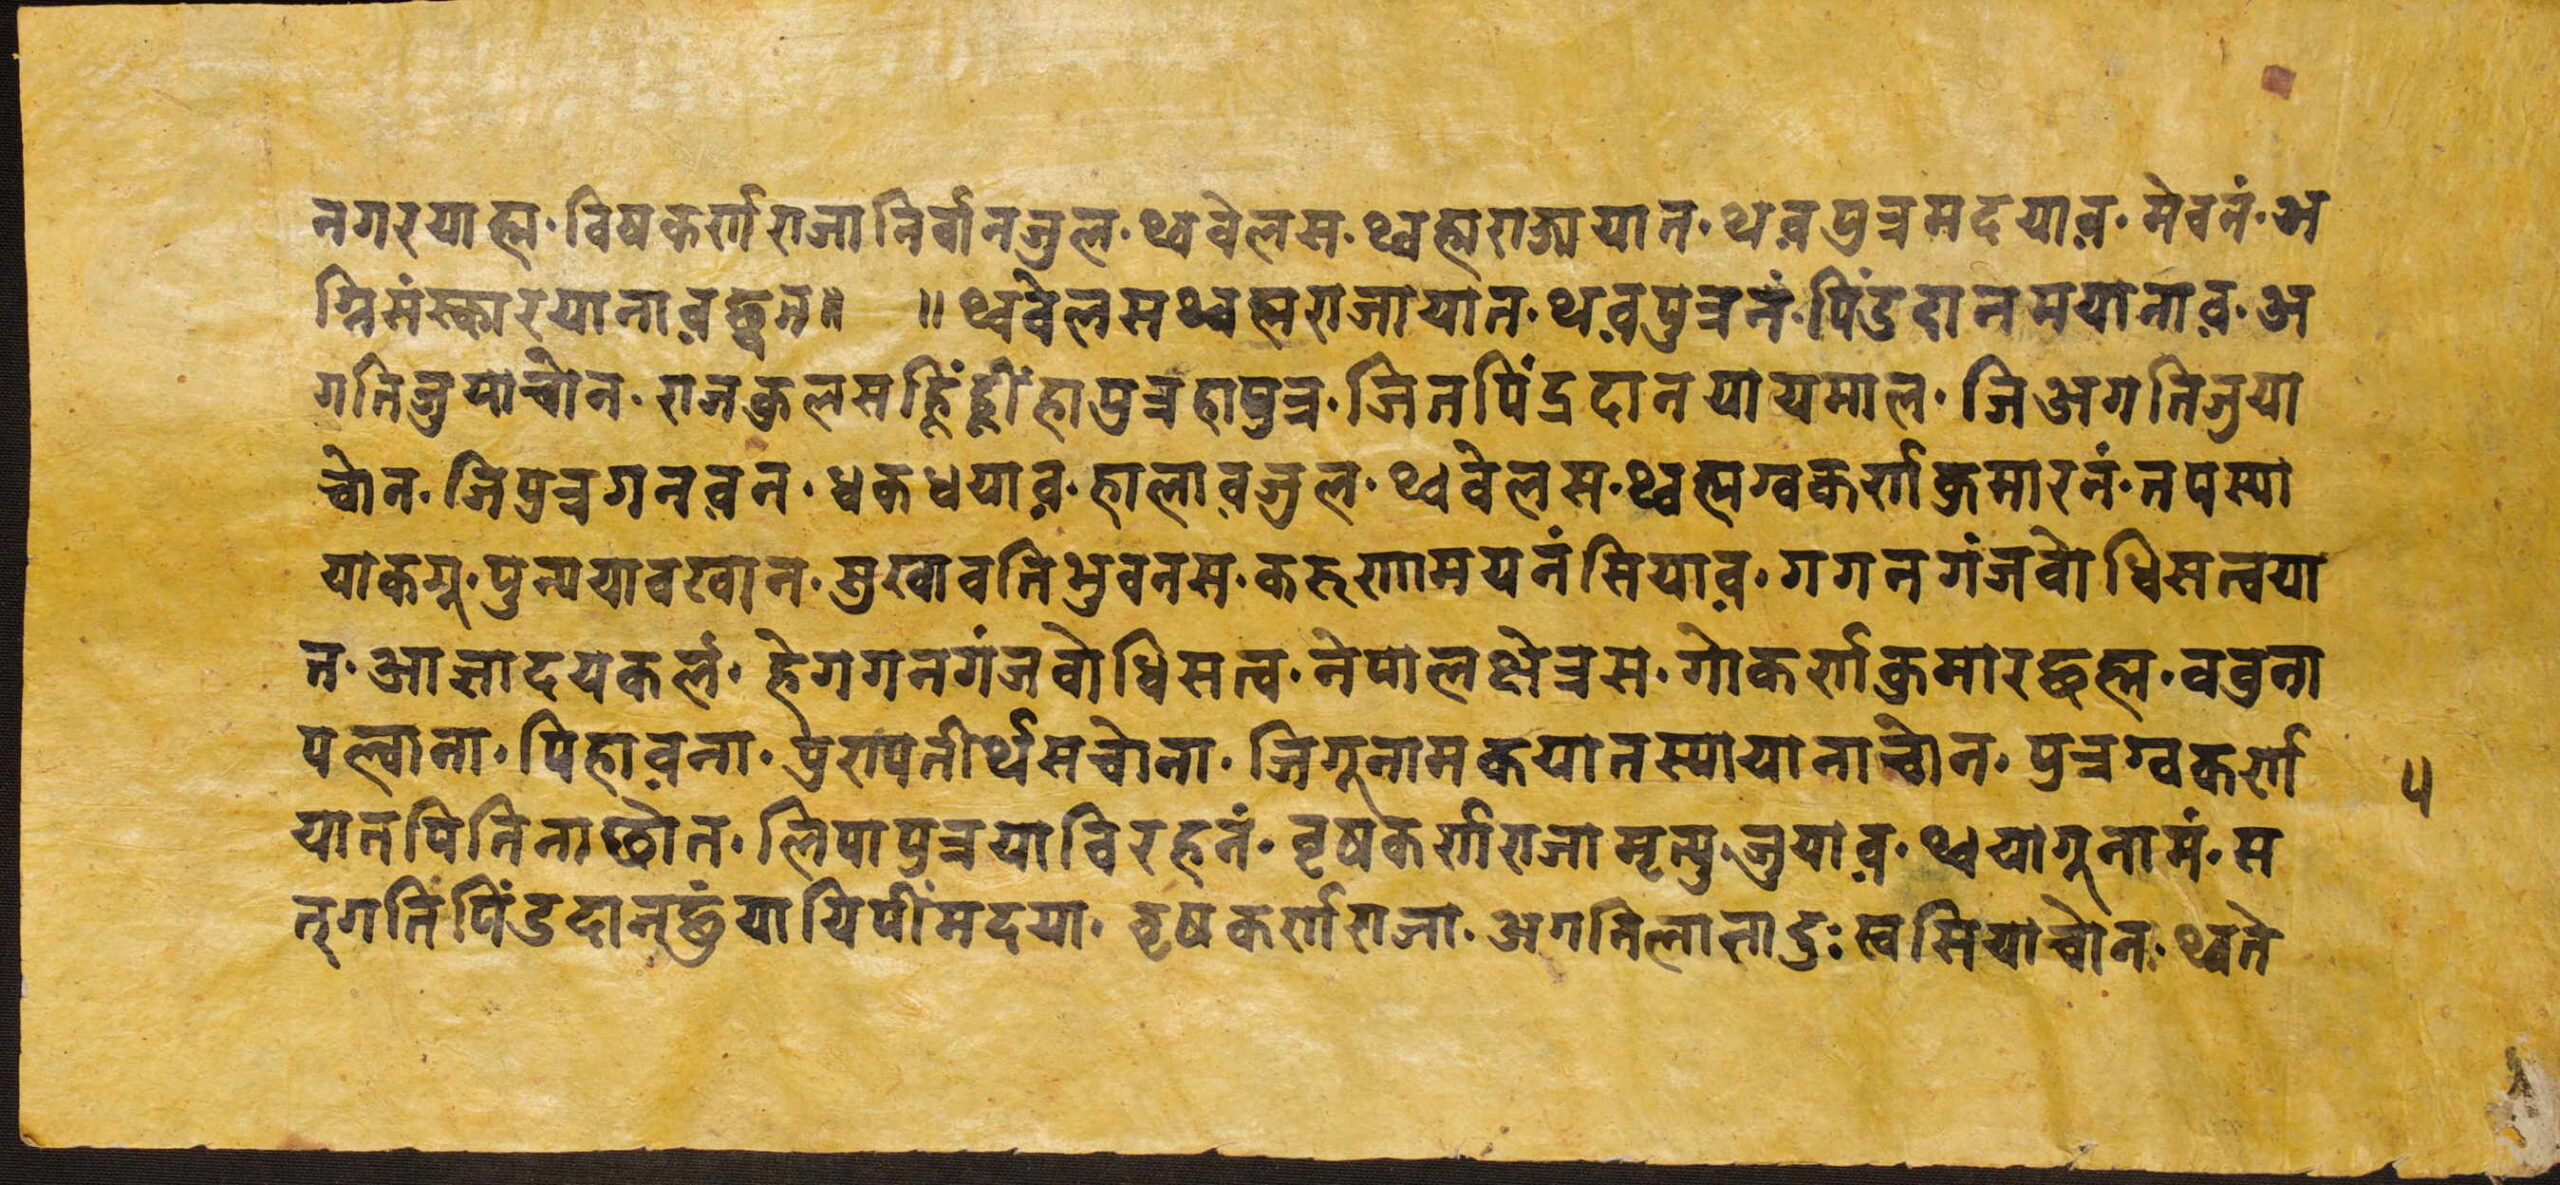 नगरयाह्म· विषकर्णराजानिर्वानजुल· थ्ववेलस· थ्वह्मराज्ययात· थव़पुत्रमदयाव़· मेवनं· अ
ग्निसंस्कारयानाव़छ्वत॥ ॥थ्ववेलसथ्वह्मराजायात· थव़पुत्रनं· पिंडदानमयानाव़· अ
गतिजुयाचोन· राजकुलसह्रिंह्रीं हापुत्रहापुत्र· जितपिंद्रदानयायमाल· जिअगतिजुया
चोन· जिपुत्रगनव़न· धकधयाव़· हालाव़जुल· थ्ववेलस· थ्वह्मग्वकर्णकुमारनं· तपस्या
याकगू· पुन्ययावखान· सुखावतिभुवनस· करुणामयनंसियाव़· गगनगंजबोधिसत्वया
त· आज्ञादयकलं· हेगगनगंजबोधिसत्व· नेपालक्षेत्रस· गोकर्णकुमारछह्म· वबुना
पल्वाना· पिहाव़ना· पुरापतीर्थसचोना· जिगूनामकयातस्यायानाचोन· पुत्रग्वकर्ण
यातपितिनाछोत· लिपापुत्रयाविरहनं· वृषकर्णराजामृत्युजुयाव़· थ्वयागूनामं· स
त्गतिंपिंडदान्छुंयायिपींमदया· वृषकर्णराजा· अगतिलानादुःखसियाचोन· थ्वते
५